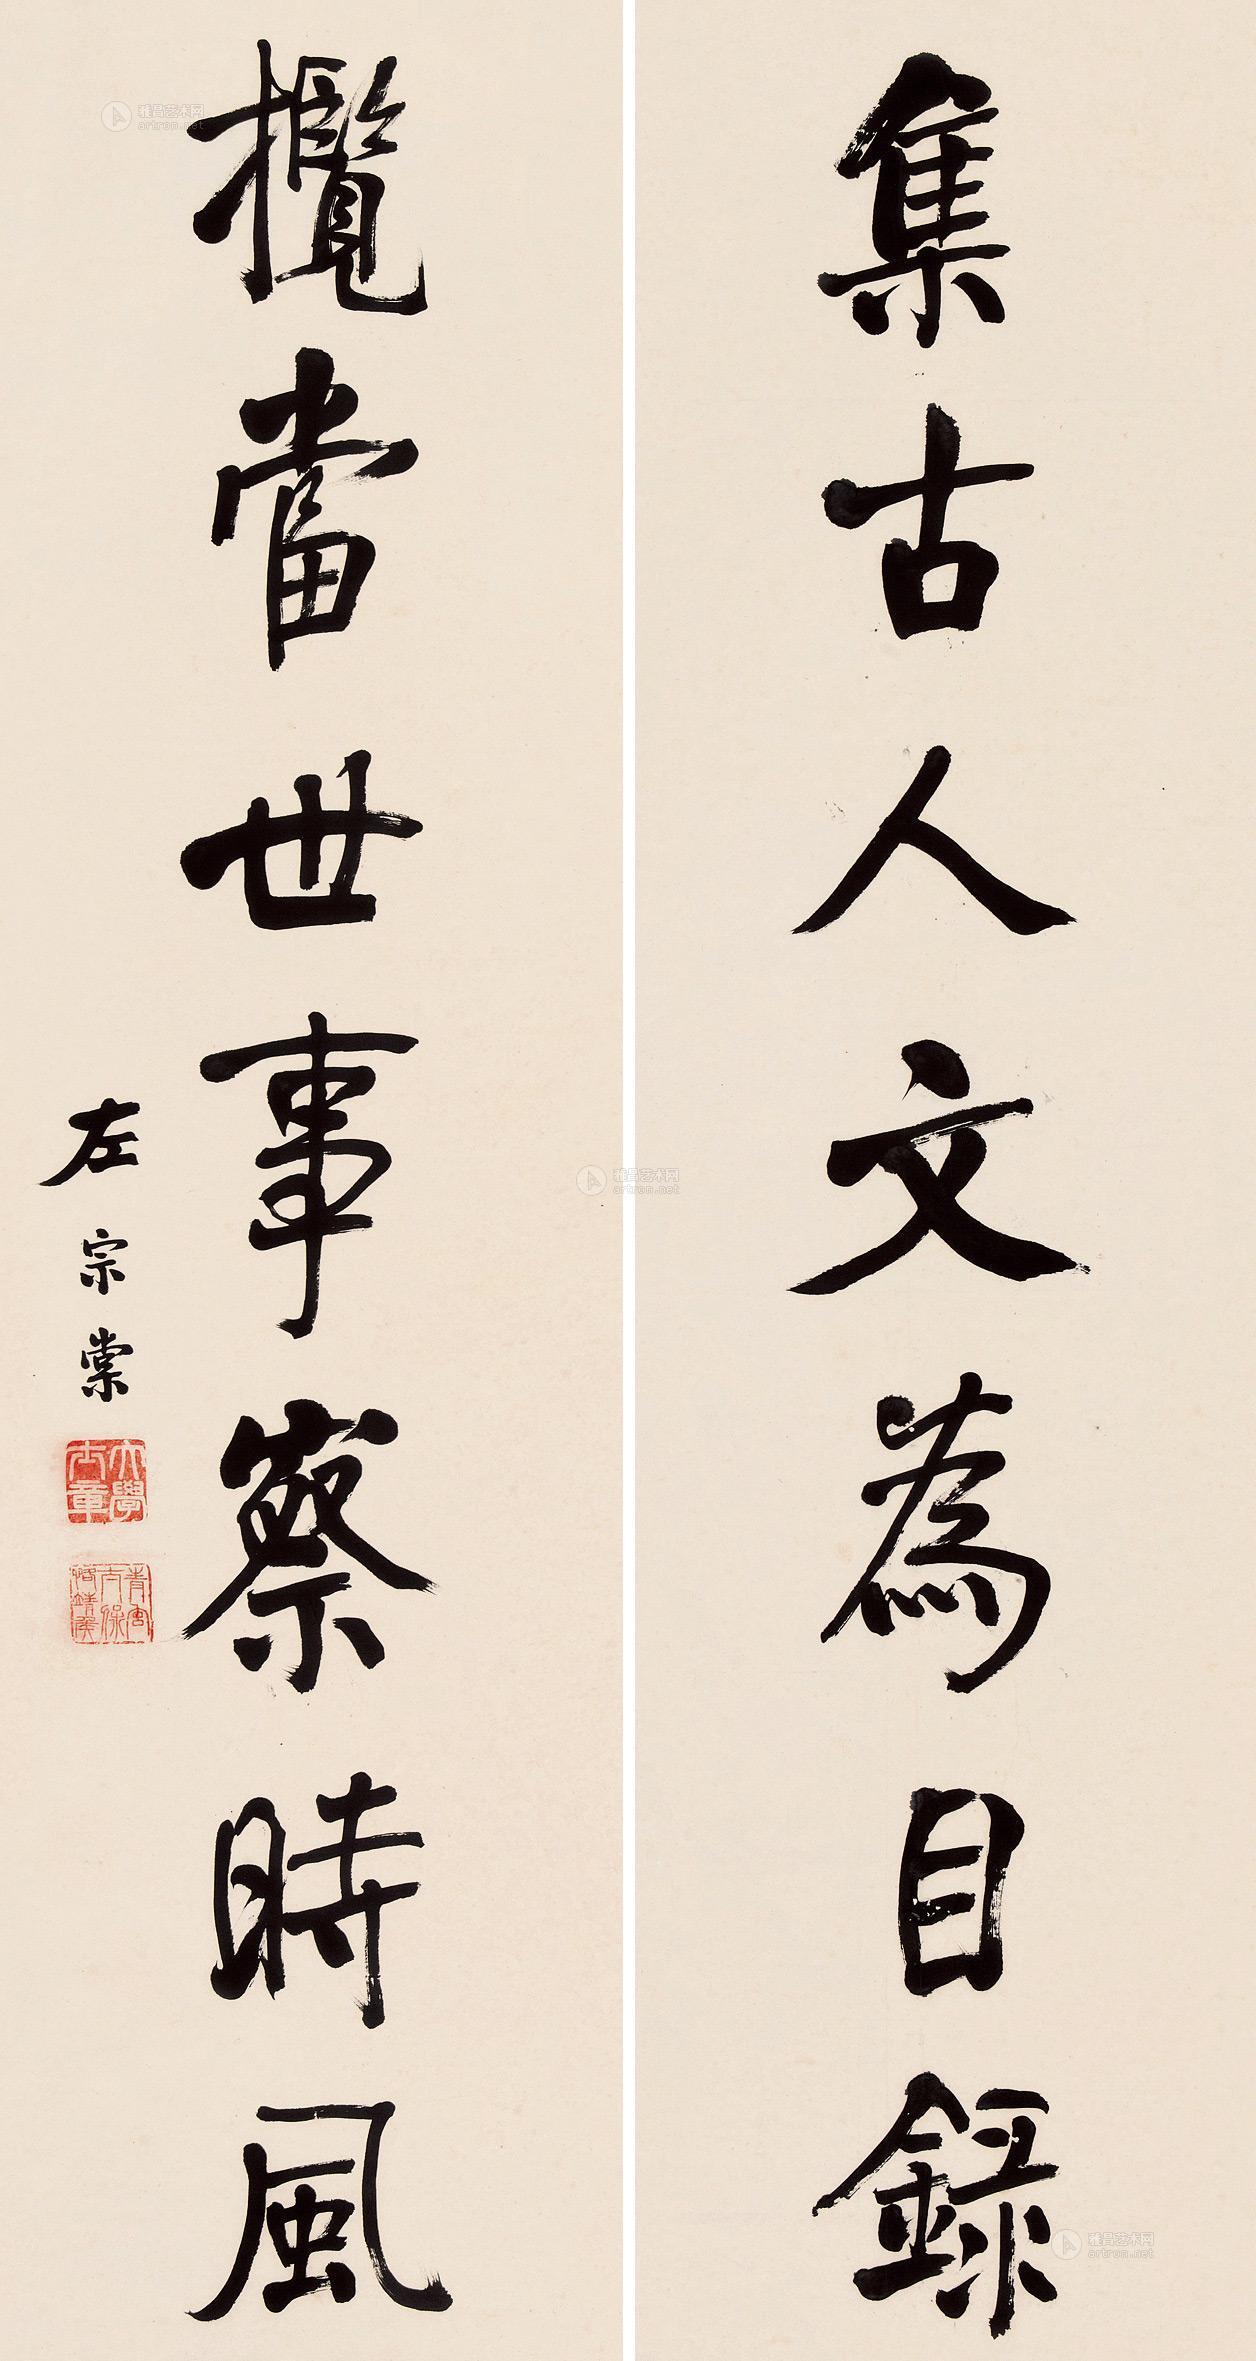 集古人文為目錄
攬當世事察時風
左宗棠
大學士章
青宮太保恪靖侯
雅昌艺术网
artron.net
雅昌艺术网
artron.net
雅昌艺术网
artron.net